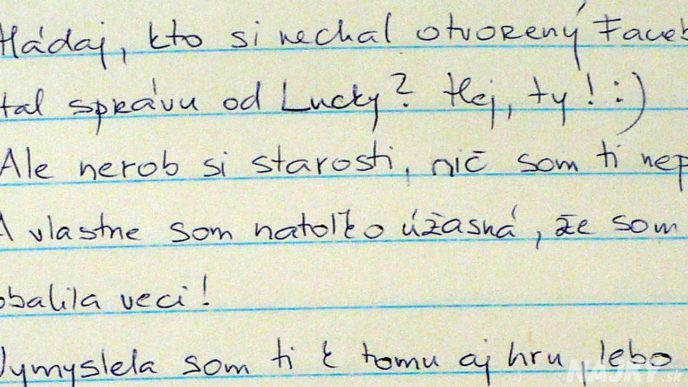 Hádaj, kto si nechal otvorený Faceb
tal správu od Lucky? Hej, ty! :)
Ale nerob si starosti, nič som ti nep
A vlastne som natoľko úžasná, že som
obalila veci!
Vymyslela som ti k tomu aj hru lebo
NAJKY.sk